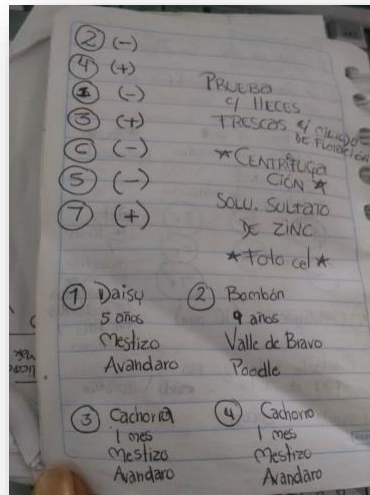 ② (-)
④ (+)
① (-)
③ (+)
⑥ (-)
⑤ (-)
⑦ (+)
PRUEBA
c/ HECES
FRESCAS c/ DE FLOTACIÓN
★ CENTRIFUGA
CIÓN ★
SOLU. SULFATO
DE ZINC
★ Foto cel ★
① Daisy
5 años
Mestizo
Avandaro
② Bombón
9 años
Valle de Bravo
Poodle
③ Cachorra
1 mes
Mestizo
Avandaro
④ Cachorro
1 mes
Mestizo
Avandaro